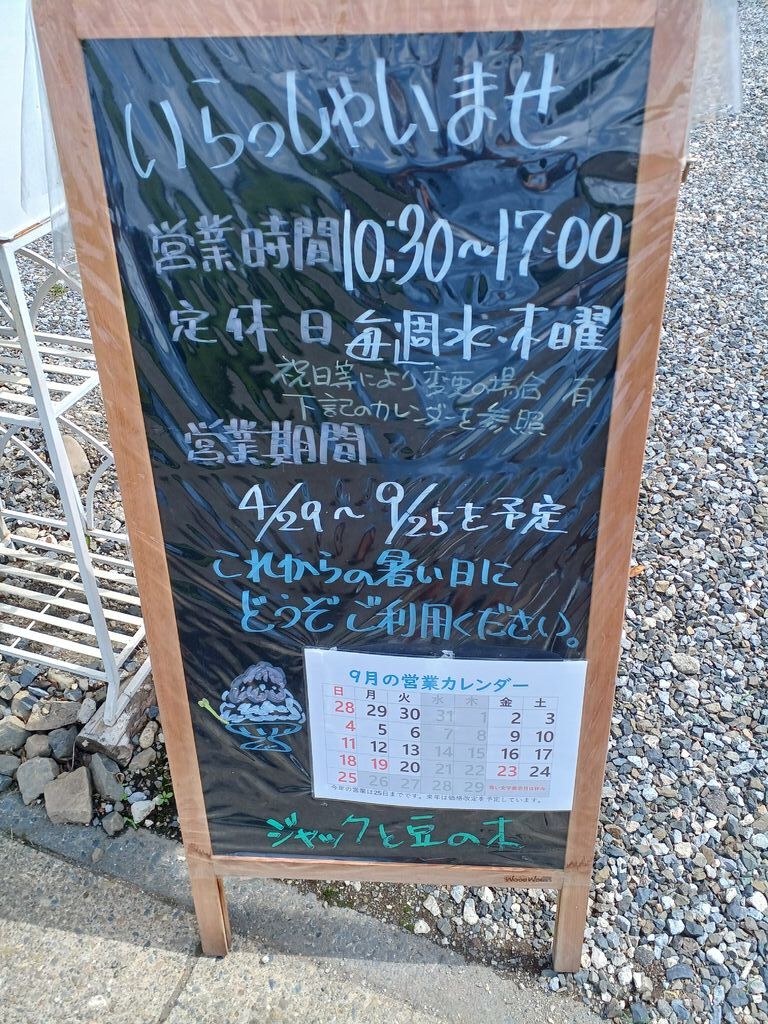 いらっしゃいませ
営業時間10:30～17:00
定休日 毎週水・木曜
祝日等により変更の場合 有
下記のカレンダーを参照
営業期間
4/29～9/25を予定
これからの暑い日に
どうぞご利用ください。
9月の営業カレンダー
日 月 火 水 木 金 土
28 29 30 31 1 2 3
4 5 6 7 8 9 10
11 12 13 14 15 16 17
18 19 20 21 22 23 24
25 26 27 28 29
今年の営業は25日までです。来年は価格改定を予定しています。
ジャックと豆の木